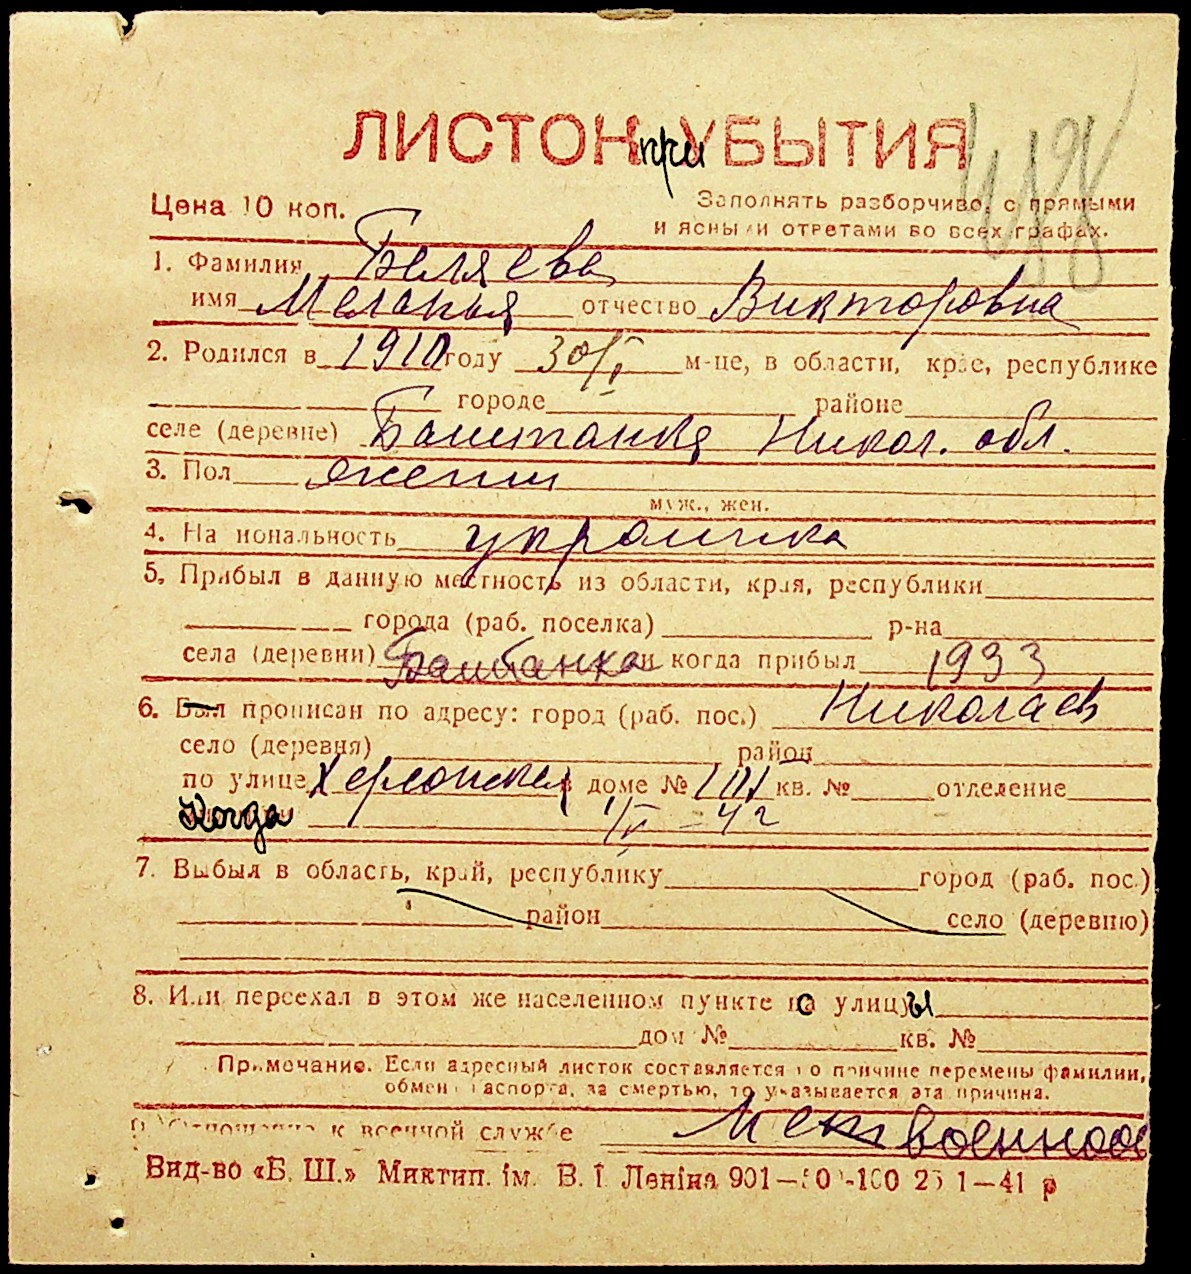 ЛИСТОК при УБЫТИЯ
Цена 10 коп.
Заполнять разборчиво, с прямыми
и ясными ответами во всех графах.
1. Фамилия Беляева
имя Меланья отчество Викторовна
2. Родился в 1910 году 30/ м-це, в области, крае, республике
городе районе
селе (деревне) Баштанка Никол. обл.
3. Пол женский
муж., жен.
4. Национальность украинка
5. Прибыл в данную местность из области, края, республики
города (раб. поселка) р-на
села (деревни) Баштанка и когда прибыл 1933
6. Был прописан по адресу: город (раб. пос.) Николаев
село (деревня) район
по улице Херсонская в доме № 101 кв. № отделение
Когда
7. Выбыл в область, край, республику город (раб. пос.)
район село (деревню)
8. Или переехал в этом же населенном пункте со улицы
дом № кв. №
Примечание. Если адресный листок составляется по причине перемены фамилии,
обмена паспорта, за смертью, то указывается эта причина.
Отношение к военной службе
Вид-во «Б. Ш.» Миктип. ім. В. І Леніна 901— -100 1—41 р